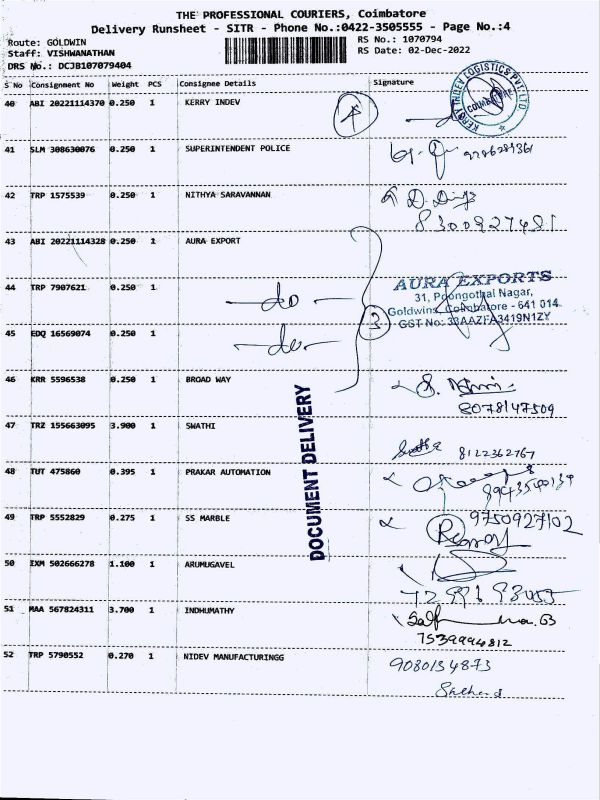 THE PROFESSIONAL COURIERS, Coimbatore
Delivery Runsheet - SITR - Phone No.:0422-3505555 - Page No.:4
Route: GOLDWIN
RS No.: 1070794
Staff: VISHWANATHAN
RS Date: 02-Dec-2022
DRS No.: DCJB107079404
S No Consignment No Weight PCS Consignee Details Signature
40 ABI 20221114370 0.250 1 KERRY INDEV 4
KERRY INDEV LOGISTICS PVT. LTD
COIMBATORE
41 SLM 308630076 0.250 1 SUPERINTENDENT POLICE
42 TRP 1575539 0.250 1 NITHYA SARAVANNAN
8300927481
43 ABI 20221114328 0.250 1 AURA EXPORT
44 TRP 7907621 0.250 1 do
AURA EXPORTS
31, Poongothai Nagar,
Goldwins, Coimbatore - 641 014.
GST No: 33AAZFA3419N1ZY
3
45 EDQ 16569074 0.250 1 do
46 KRR 5596538 0.250 1 BROAD WAY
8078147509
47 TRZ 155663095 3.900 1 SWATHI
8122362767
DOCUMENT DELIVERY
48 TUT 475860 0.395 1 PRAKAR AUTOMATION
49 TRP 5552829 0.275 1 SS MARBLE
9750927102
50 IXM 502666278 1.100 1 ARUMUGAVEL
51 MAA 567824311 3.700 1 INDHUMATHY
7539994812
52 TRP 5790552 0.270 1 NIDEV MANUFACTURINGG
9080154873